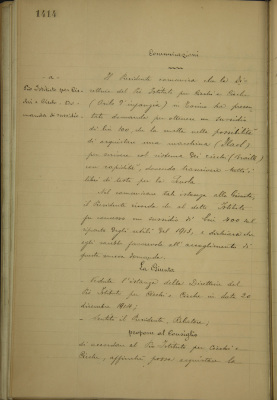 1414
Comunicazioni
- a -
Pio Istituto per Cie-
chi e Cieche. Do-
manda di sussidio.
Il Presidente comunica che la Di-
rettrice del Pio Istituto per Ciechi e Cieche
presen-
tato domanda per ottenere un sussidio
di lire 200, che la metta nella possibilità
di acquistare una macchina
per scrivere col sistema dei ciechi (Braille)
con rapidità, dovendo trascrivere molti
libri di testo per la scuola.
Nel comunicare tal istanza alla Giunta,
il Presidente ricorda che al detto Istituto
fu concesso un sussidio di lire 200 sul
riparto degli utili del 1913, e dichiara che
egli sarebbe favorevole all'accoglimento di
questa nuova domanda.
La Giunta
- Veduta l'istanza della Direttrice del
Pio Istituto per Ciechi e Cieche in data 20
dicembre 1914;
- Sentito il Presidente, Relatore;
propone al Consiglio
di accordare al Pio Istituto per Ciechi e
Cieche, affinché possa acquistare la